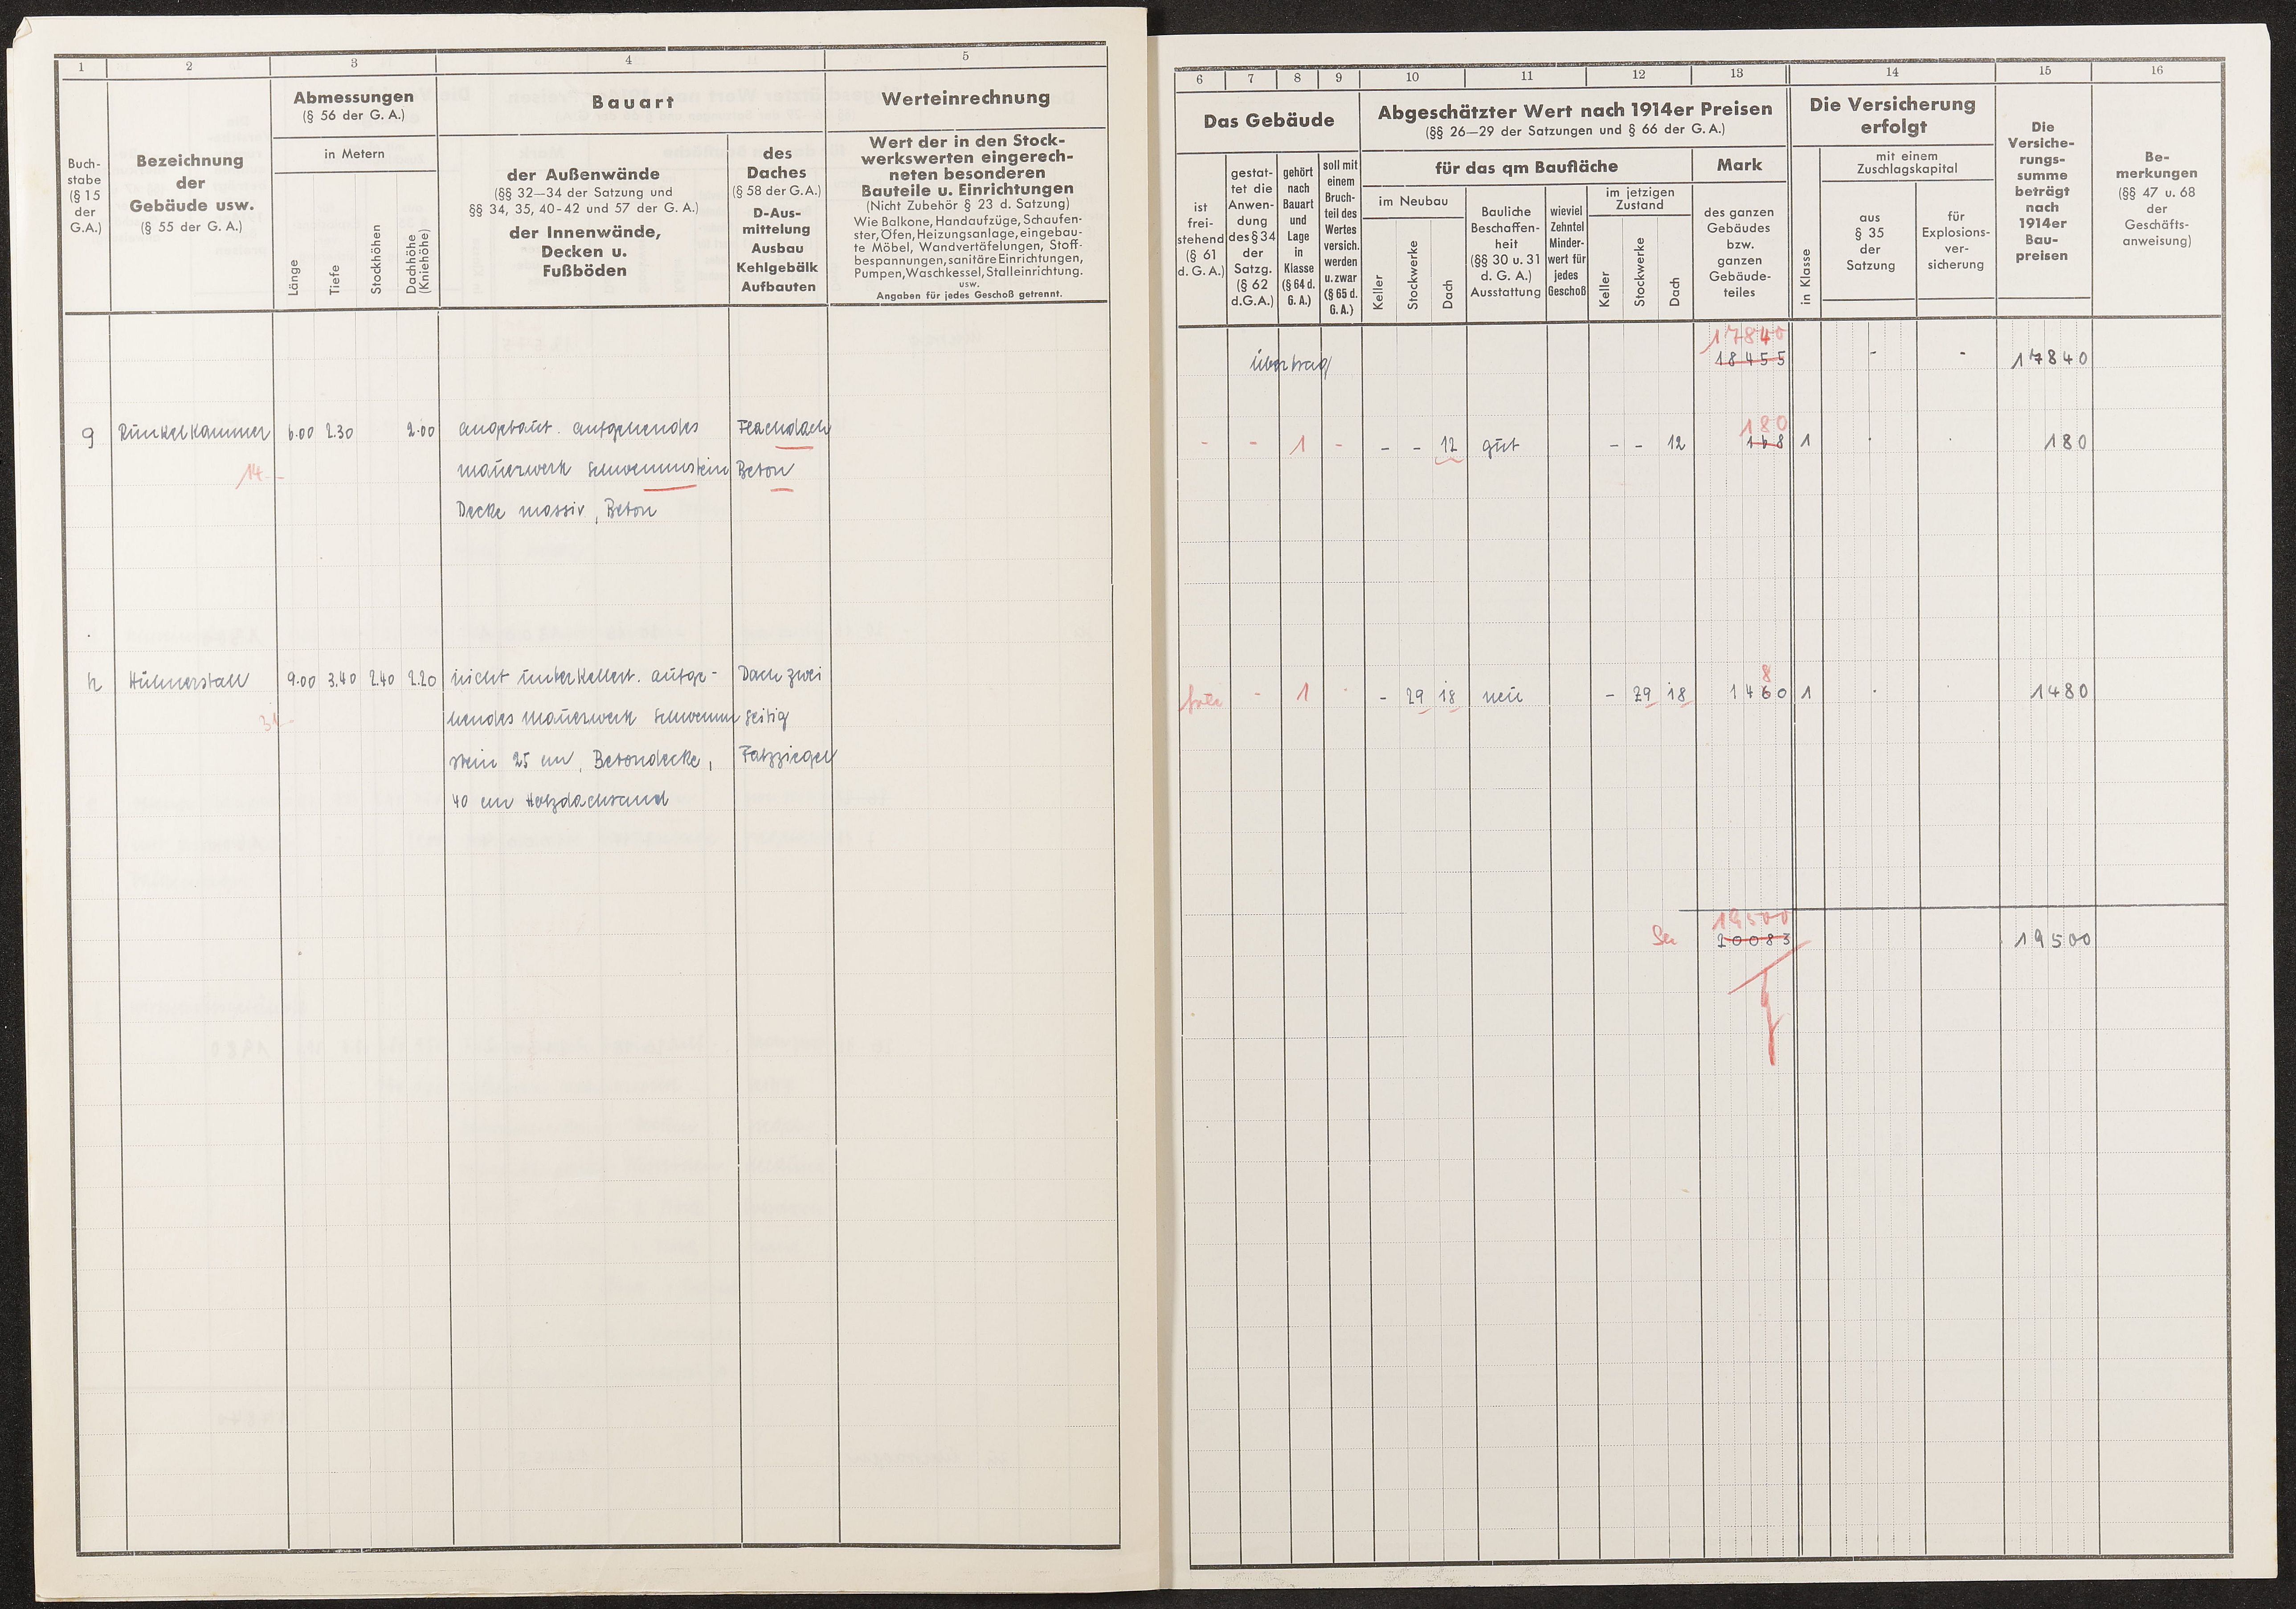 1 2 3 4 5
Buch-
stabe
(§ 15
der
G.A.)
Bezeichnung
der
Gebäude usw.
(§ 55 der G. A.)
Abmessungen
(§ 56 der G. A.)
in Metern
Länge
Tiefe
Stockhöhen
Dachhöhe
(Kniehöhe)
Bauart
der Außenwände
(§§ 32—34 der Satzung und
§§ 34, 35, 40-42 und 57 der G. A.)
der Innenwände,
Decken u.
Fußböden
des
Daches
(§ 58 der G.A.)
D-Aus-
mittelung
Ausbau
Kehlgebälk
Aufbauten
Werteinrechnung
Wert der in den Stock-
werkswerten eingerech-
neten besonderen
Bauteile u. Einrichtungen
(Nicht Zubehör § 23 d. Satzung)
Wie Balkone, Handaufzüge, Schaufen-
ster, Öfen, Heizungsanlage, eingebau-
te Möbel, Wandvertäfelungen, Stoff-
bespannungen, sanitäre Einrichtungen,
Pumpen, Waschkessel, Stalleinrichtung.
usw.
Angaben für jedes Geschoß getrennt.
g Runkelkammer 6.00 2.30 2.00 angebaut. aufgehendes Flachdach
14.- mauerwerk schwemmstein Beton
Decke massiv, Beton
h Hühnerstall 9.00 3.40 2.40 2.20 nicht unterkellert. aufge- Dach zwei
31.- hendes mauerwerk schwemm seitig
stein 25 cm, Betondecke, Falzziegel
40 cm Holzdachrand
6 7 8 9 10 11 12 13 14 15 16
Das Gebäude
ist
frei-
stehend
(§ 61
d. G. A.)
gestat-
tet die
Anwen-
dung
des § 34
der
Satzg.
(§ 62
d.G.A.)
gehört
nach
Bauart
und
Lage
in
Klasse
(§ 64 d.
G. A.)
soll mit
einem
Bruch-
teil des
Wertes
versich.
werden
u. zwar
(§ 65 d.
G. A.)
Abgeschätzter Wert nach 1914er Preisen
(§§ 26—29 der Satzungen und § 66 der G. A.)
für das qm Baufläche
im Neubau
Keller
Stockwerke
Dach
Bauliche
Beschaffen-
heit
(§§ 30 u. 31
d. G. A.)
Ausstattung
wieviel
Zehntel
Minder-
wert für
jedes
Geschoß
im jetzigen
Zustand
Keller
Stockwerke
Dach
Mark
des ganzen
Gebäudes
bzw.
ganzen
Gebäude-
teiles
Die Versicherung
erfolgt
in Klasse
mit einem
Zuschlagskapital
aus
§ 35
der
Satzung
für
Explosions-
ver-
sicherung
Die
Versiche-
rungs-
summe
beträgt
nach
1914er
Bau-
preisen
Be-
merkungen
(§§ 47 u. 68
der
Geschäfts-
anweisung)
17840
übertrag 18455 - - 17840
180
- - 1 - - - 12 gut - - 12 168 1 . . 180
8
frei - 1 . - 29 18 neu - 29 18 1460 1 . . 1480
19500
Sa 20083 19500